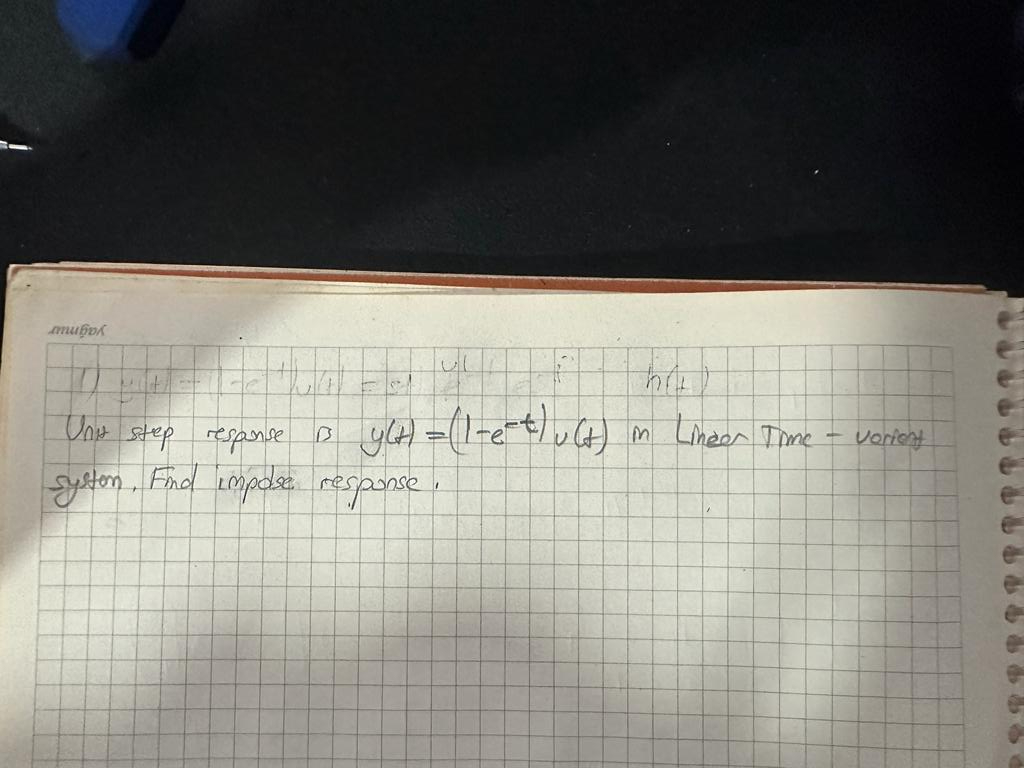 yağmur
h(t)
Unit step response is y(t) = (1-e^-t) u(t) in Linear Time - varient
system. Find impulse response.